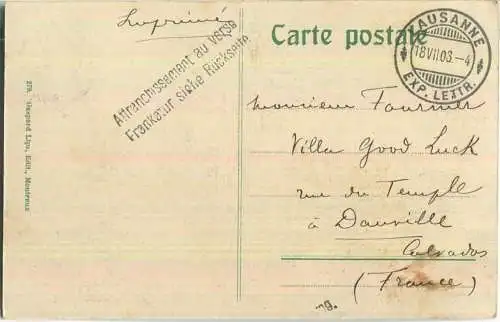 Imprimé
Affranchissement au verso
Frankatur siehe Rückseite
Carte postale
LAUSANNE
18 VII 03. – 4
EXP. LETTR.
monsieur Fournier
Villa Good Luck
rue du Temple
à Dauville
Calvados
(France)
279. Gaspard Lips, Edit., Montreux